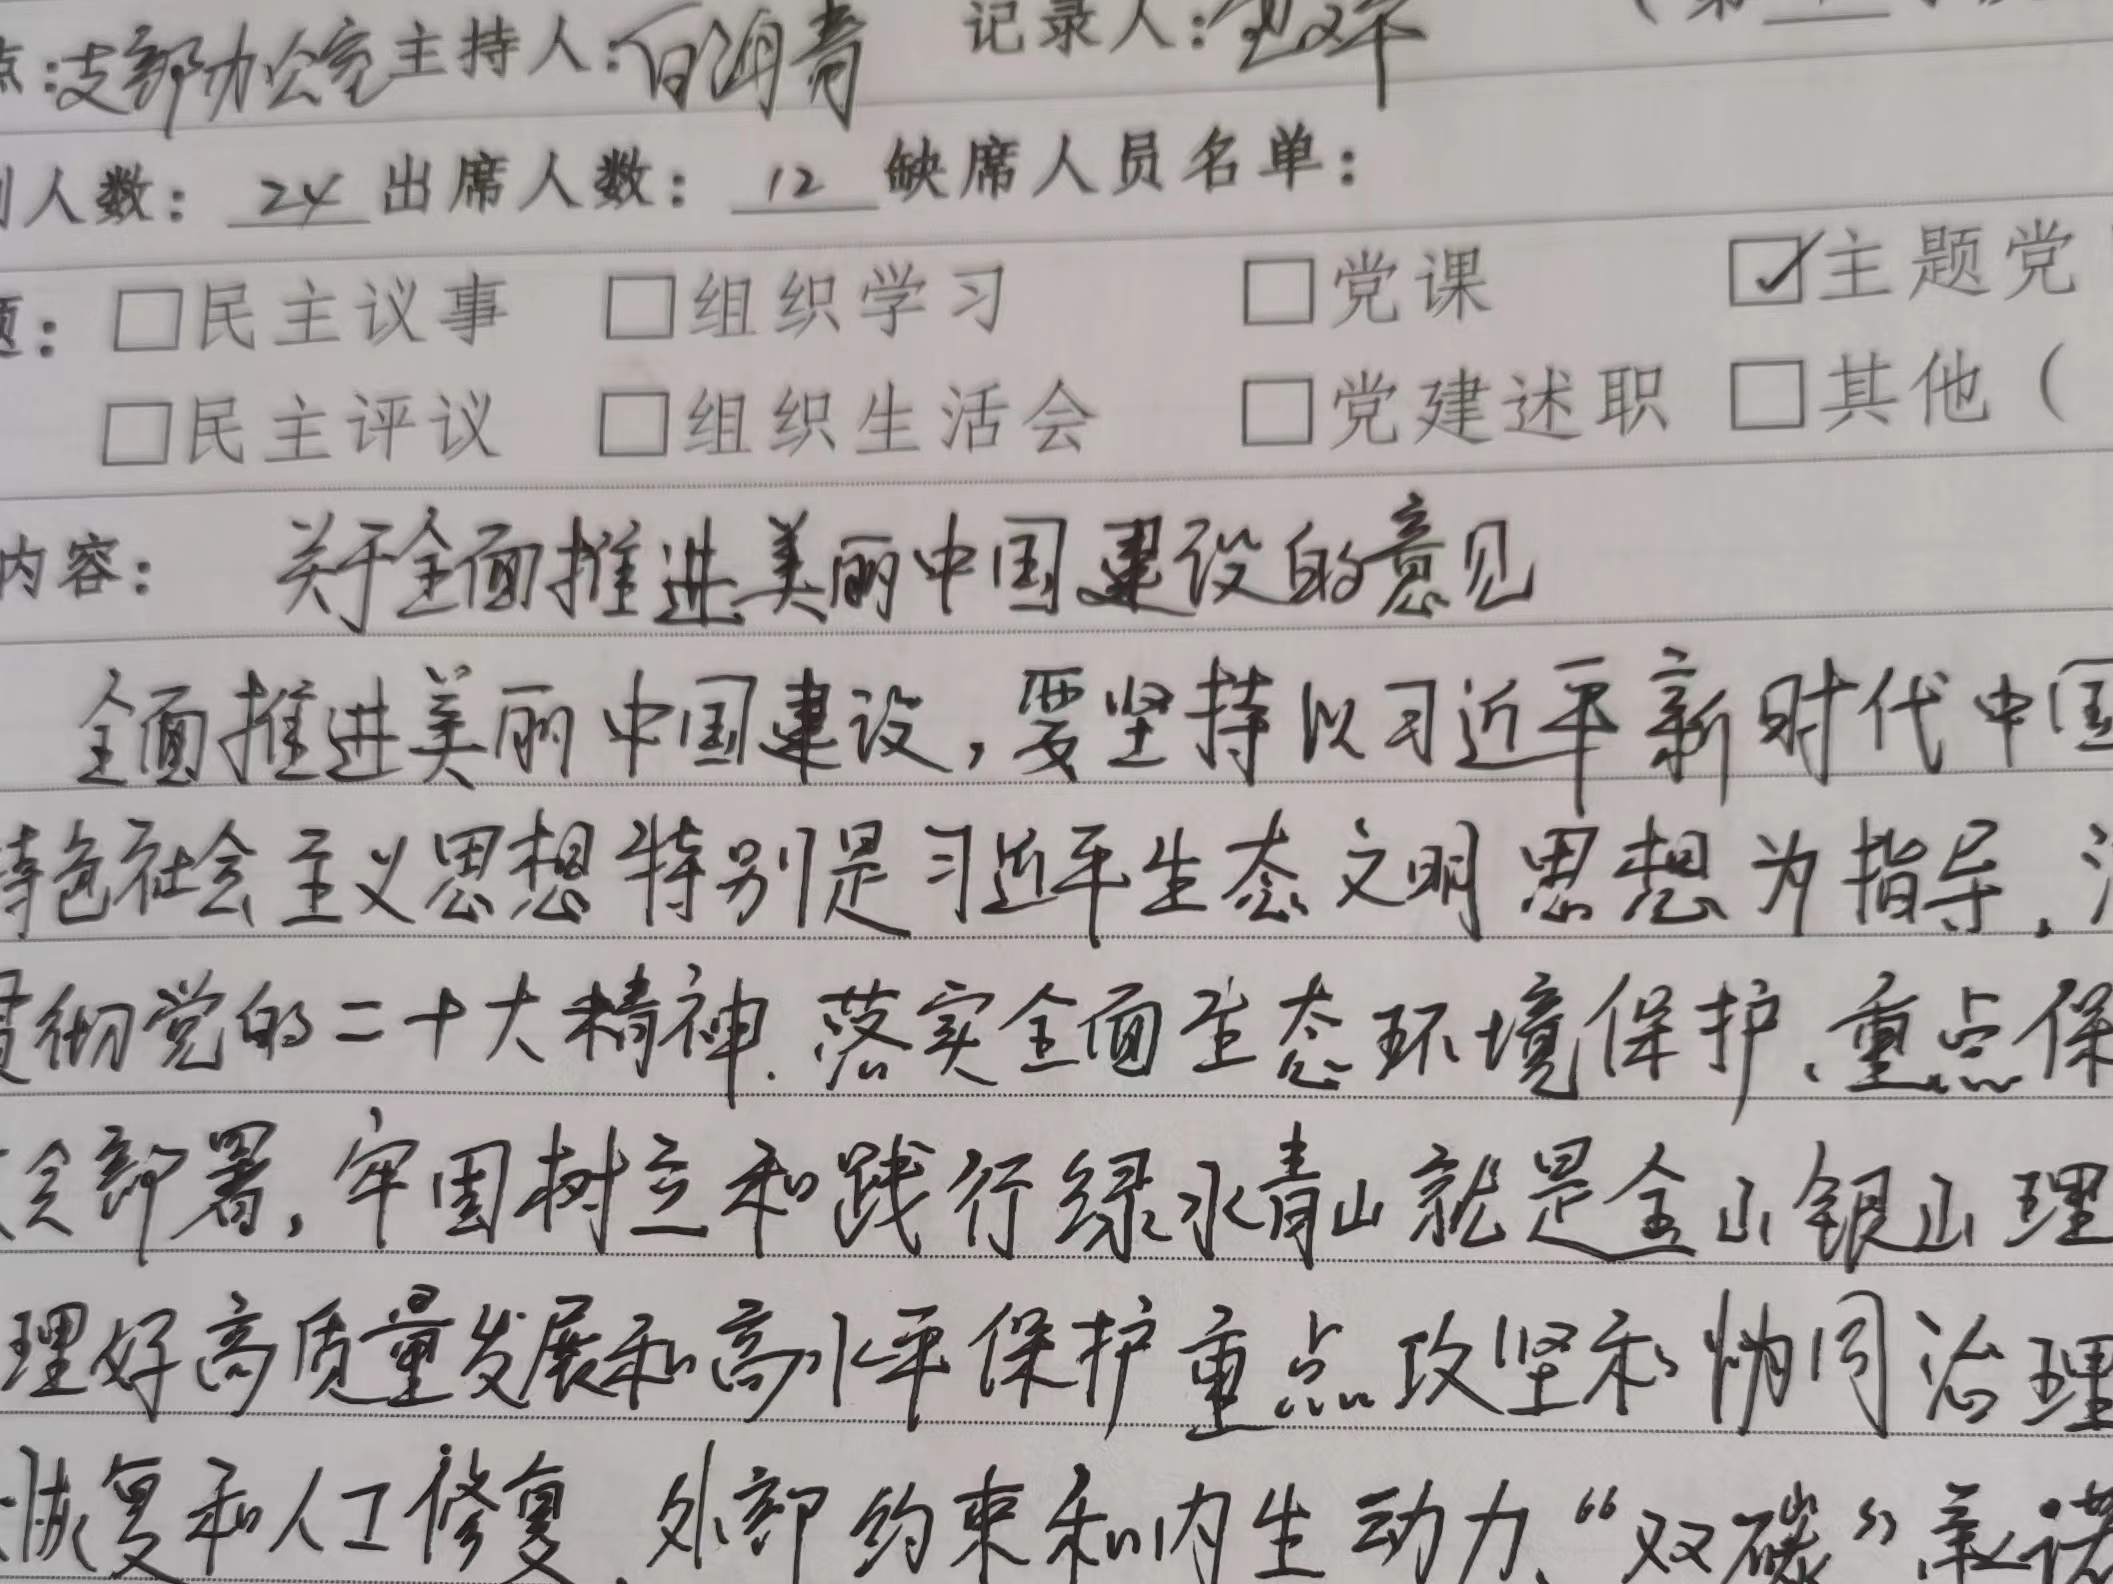 点:支部办公室 主持人:白海青 记录人:
人数: 24 出席人数: 12 缺席人员名单:
题: □民主议事 □组织学习 □党课 ☑主题党
□民主评议 □组织生活会 □党建述职 □其他(
内容: 关于全面推进美丽中国建设的意见
全面推进美丽中国建设,要坚持以习近平新时代中国
特色社会主义思想特别是习近平生态文明思想为指导,
贯彻党的二十大精神.落实全面生态环境保护、重点保
会部署,牢固树立和践行绿水青山就是金山银山理
理好高质量发展和高水平保护重点攻坚和协同治理
恢复和人工修复、外部约束和内生动力、“双碳”承诺